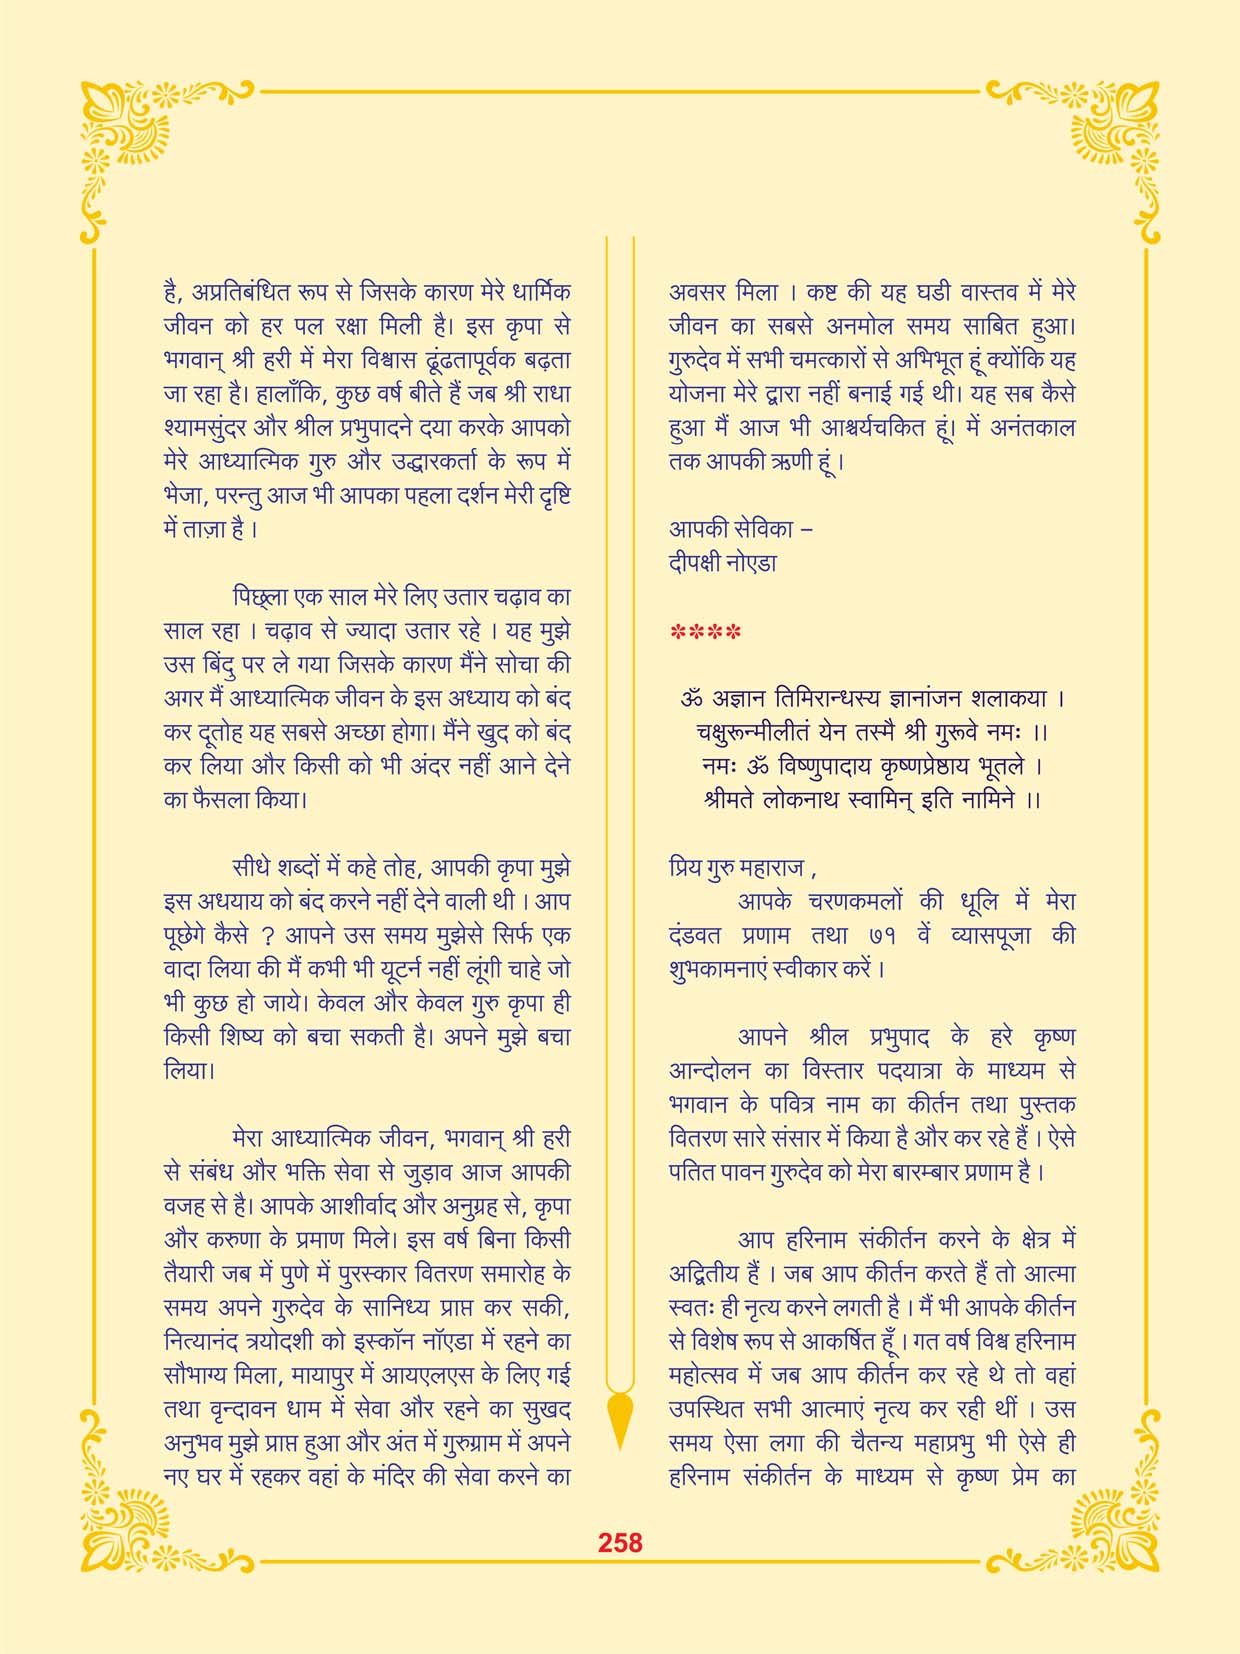 है, अप्रतिबंधित रूप से जिसके कारण मेरे धार्मिक
जीवन को हर पल रक्षा मिली है। इस कृपा से
भगवान् श्री हरी में मेरा विश्वास ढूंढतापूर्वक बढ़ता
जा रहा है। हालाँकि, कुछ वर्ष बीते हैं जब श्री राधा
श्यामसुंदर और श्रील प्रभुपादने दया करके आपको
मेरे आध्यात्मिक गुरु और उद्धारकर्ता के रूप में
भेजा, परन्तु आज भी आपका पहला दर्शन मेरी दृष्टि
में ताज़ा है ।
पिछ्ला एक साल मेरे लिए उतार चढ़ाव का
साल रहा । चढ़ाव से ज्यादा उतार रहे । यह मुझे
उस बिंदु पर ले गया जिसके कारण मैंने सोचा की
अगर मैं आध्यात्मिक जीवन के इस अध्याय को बंद
कर दूतोह यह सबसे अच्छा होगा। मैंने खुद को बंद
कर लिया और किसी को भी अंदर नहीं आने देने
का फैसला किया।
सीधे शब्दों में कहे तोह, आपकी कृपा मुझे
इस अधयाय को बंद करने नहीं देने वाली थी । आप
पूछेगे कैसे ? आपने उस समय मुझेसे सिर्फ एक
वादा लिया की मैं कभी भी यूटर्न नहीं लूंगी चाहे जो
भी कुछ हो जाये। केवल और केवल गुरु कृपा ही
किसी शिष्य को बचा सकती है। अपने मुझे बचा
लिया।
मेरा आध्यात्मिक जीवन, भगवान् श्री हरी
से संबंध और भक्ति सेवा से जुड़ाव आज आपकी
वजह से है। आपके आशीर्वाद और अनुग्रह से, कृपा
और करुणा के प्रमाण मिले। इस वर्ष बिना किसी
तैयारी जब में पुणे में पुरस्कार वितरण समारोह के
समय अपने गुरुदेव के सानिध्य प्राप्त कर सकी,
नित्यानंद त्रयोदशी को इस्कॉन नॉएडा में रहने का
सौभाग्य मिला, मायापुर में आयएलएस के लिए गई
तथा वृन्दावन धाम में सेवा और रहने का सुखद
अनुभव मुझे प्राप्त हुआ और अंत में गुरुग्राम में अपने
नए घर में रहकर वहां के मंदिर की सेवा करने का
अवसर मिला । कष्ट की यह घडी वास्तव में मेरे
जीवन का सबसे अनमोल समय साबित हुआ।
गुरुदेव में सभी चमत्कारों से अभिभूत हूं क्योंकि यह
योजना मेरे द्वारा नहीं बनाई गई थी। यह सब कैसे
हुआ मैं आज भी आश्चर्यचकित हूं। में अनंतकाल
तक आपकी ऋणी हूं ।
आपकी सेविका –
दीपक्षी नोएडा
****
ॐ अज्ञान तिमिरान्धस्य ज्ञानांजन शलाकया ।
चक्षुरून्मीलीतं येन तस्मै श्री गुरूवे नमः ।।
नमः ॐ विष्णुपादाय कृष्णप्रेष्ठाय भूतले ।
श्रीमते लोकनाथ स्वामिन् इति नामिने ।।
प्रिय गुरु महाराज ,
आपके चरणकमलों की धूलि में मेरा
दंडवत प्रणाम तथा ७१ वें व्यासपूजा की
शुभकामनाएं स्वीकार करें ।
आपने श्रील प्रभुपाद के हरे कृष्ण
आन्दोलन का विस्तार पदयात्रा के माध्यम से
भगवान के पवित्र नाम का कीर्तन तथा पुस्तक
वितरण सारे संसार में किया है और कर रहे हैं । ऐसे
पतित पावन गुरुदेव को मेरा बारम्बार प्रणाम है ।
आप हरिनाम संकीर्तन करने के क्षेत्र में
अद्वितीय हैं । जब आप कीर्तन करते हैं तो आत्मा
स्वतः ही नृत्य करने लगती है । मैं भी आपके कीर्तन
से विशेष रूप से आकर्षित हूँ । गत वर्ष विश्व हरिनाम
महोत्सव में जब आप कीर्तन कर रहे थे तो वहां
उपस्थित सभी आत्माएं नृत्य कर रही थीं । उस
समय ऐसा लगा की चैतन्य महाप्रभु भी ऐसे ही
हरिनाम संकीर्तन के माध्यम से कृष्ण प्रेम का
258